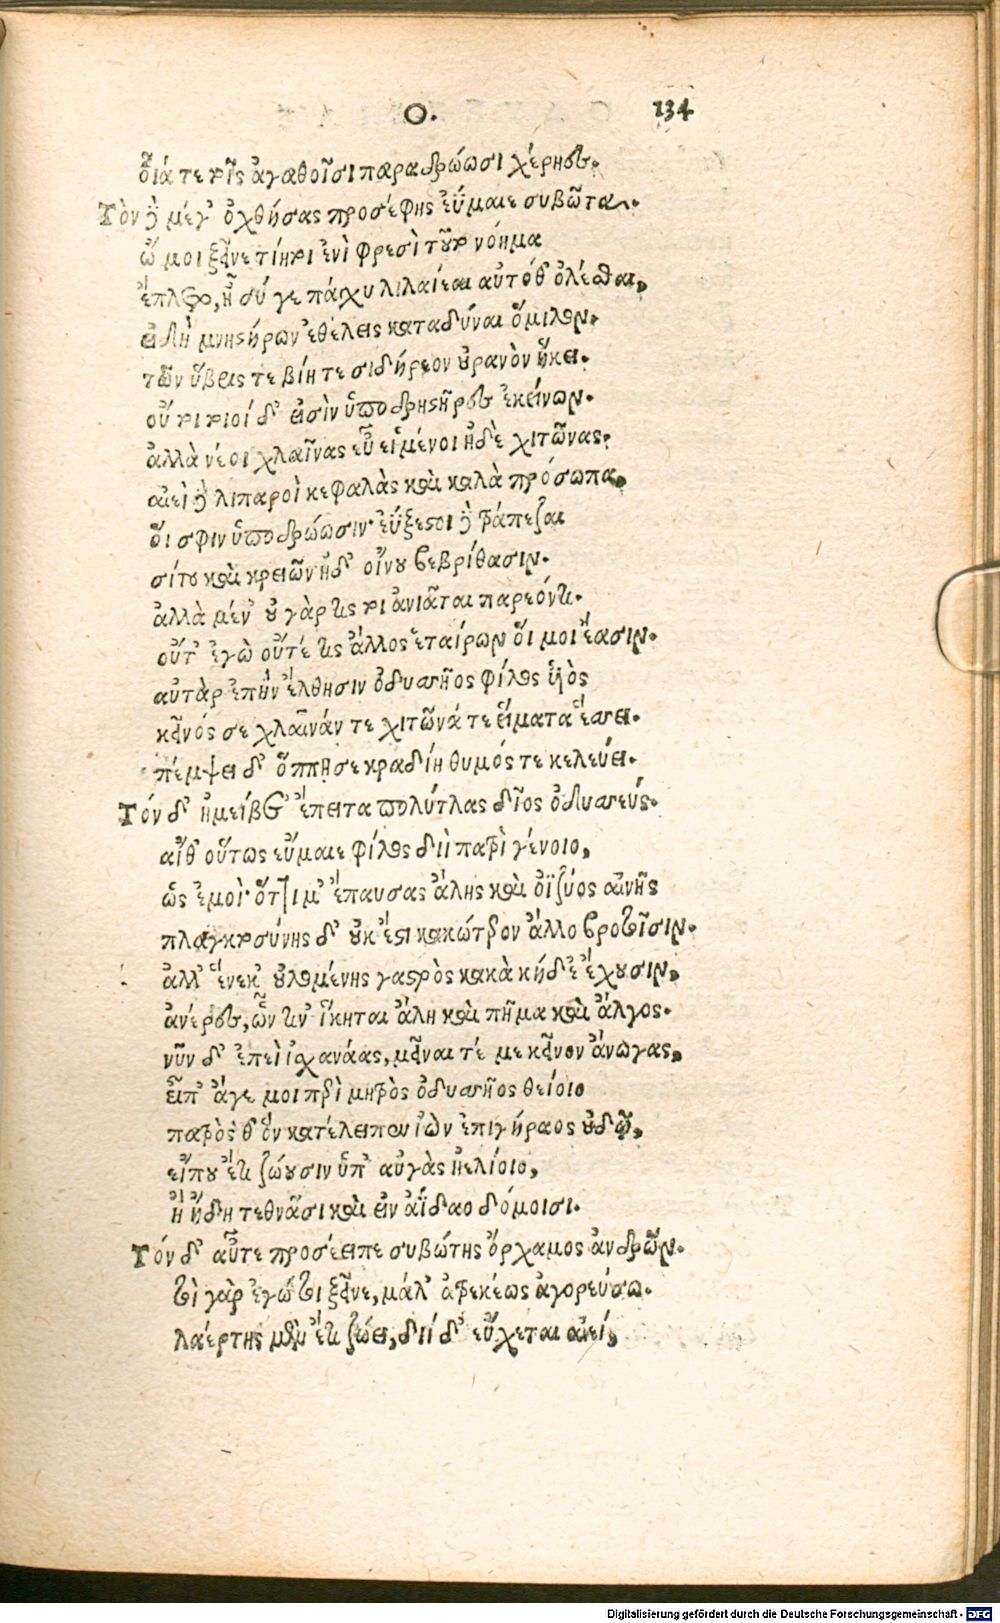 Ο. 134
οἷά τε τοῖς ἀγαθοῖσι παραδρώωσι χέρηες.
Τὸν δὲ μέγ' ὀχθήσας προσέφης εὔμαιε συβῶτα.
ὤ μοι ξεῖνε τίη τοι ἐνὶ φρεσὶ τοῦτο νόημα
ἔπλετο, ἦ σύ γε πάγχυ λιλαίεαι αὐτόθ' ὀλέσθαι,
εἰ δὴ μνηστήρων ἐθέλεις καταδύναι ὅμιλον.
τῶν ὕβρις τε βίη τε σιδήρεον οὐρανὸν ἥκει.
οὔ τοι τοιοίδ' εἰσὶν ὑποδρηστῆρες ἐκείνων.
ἀλλὰ νέοι χλαίνας εὖ εἱμένοι ἠδὲ χιτῶνας.
αἰεὶ δὲ λιπαροὶ κεφαλὰς καὶ καλὰ πρόσωπα,
οἵ σφιν ὑποδρώωσιν· ἐΰξεστοι δὲ τράπεζαι
σίτου καὶ κρειῶν ἠδ' οἴνου βεβρίθασιν.
ἀλλὰ μέν' οὐ γάρ τις τοι ἀνιᾶται παρεόντι.
οὔτ' ἐγὼ οὔτέ τις ἄλλος ἑταίρων οἵ μοι ἔασιν.
αὐτὰρ ἐπὴν ἔλθησιν ὀδυσσῆος φίλος υἱὸς
κεῖνός σε χλαῖνάν τε χιτῶνά τε εἵματα ἕσσει.
πέμψει δ' ὅππη σε κραδίη θυμός τε κελεύει.
Τόν δ' ἠμείβετ' ἔπειτα πολύτλας δῖος ὀδυσσεύς.
αἴθ' οὕτως εὔμαιε φίλος διὶ πατρὶ γένοιο,
ὡς ἐμοὶ· ὅττι μ' ἔπαυσας ἄλης καὶ ὀϊζύος αἰνῆς
πλαγκτοσύνης δ' οὐκ ἔστι κακώτερον ἄλλο βροτοῖσιν.
ἀλλ' ἕνεκ' οὐλομένης γαστρὸς κακὰ κήδε' ἔχουσιν,
ἀνέρες, ὧν κεν ἵκηται ἄλη καὶ πῆμα καὶ ἄλγος.
νῦν δ' ἐπεὶ ἰσχανάας, μεῖναι τέ με κεῖνον ἄνωγας,
εἴπ' ἄγε μοι περὶ μητρὸς ὀδυσσῆος θείοιο
πατρός θ' ὃν κατέλειπεν ἰὼν ἐπὶ γήραος οὐδῷ,
εἴ που ἔτι ζώουσιν ὑπ' αὐγὰς ἠελίοιο,
ἢ ἤδη τεθνᾶσι καὶ εἰν ἀΐδαο δόμοισι.
Τόν δ' αὖτε προσέειπε συβώτης ὄρχαμος ἀνδρῶν.
τοὶ γὰρ ἐγώ τοι ξεῖνε, μάλ' ἀτρεκέως ἀγορεύσω.
λαέρτης μὲν ἔτι ζώει, διί δ' εὔχεται αἰεί,
Digitalisierung gefördert durch die Deutsche Forschungsgemeinschaft - DFG